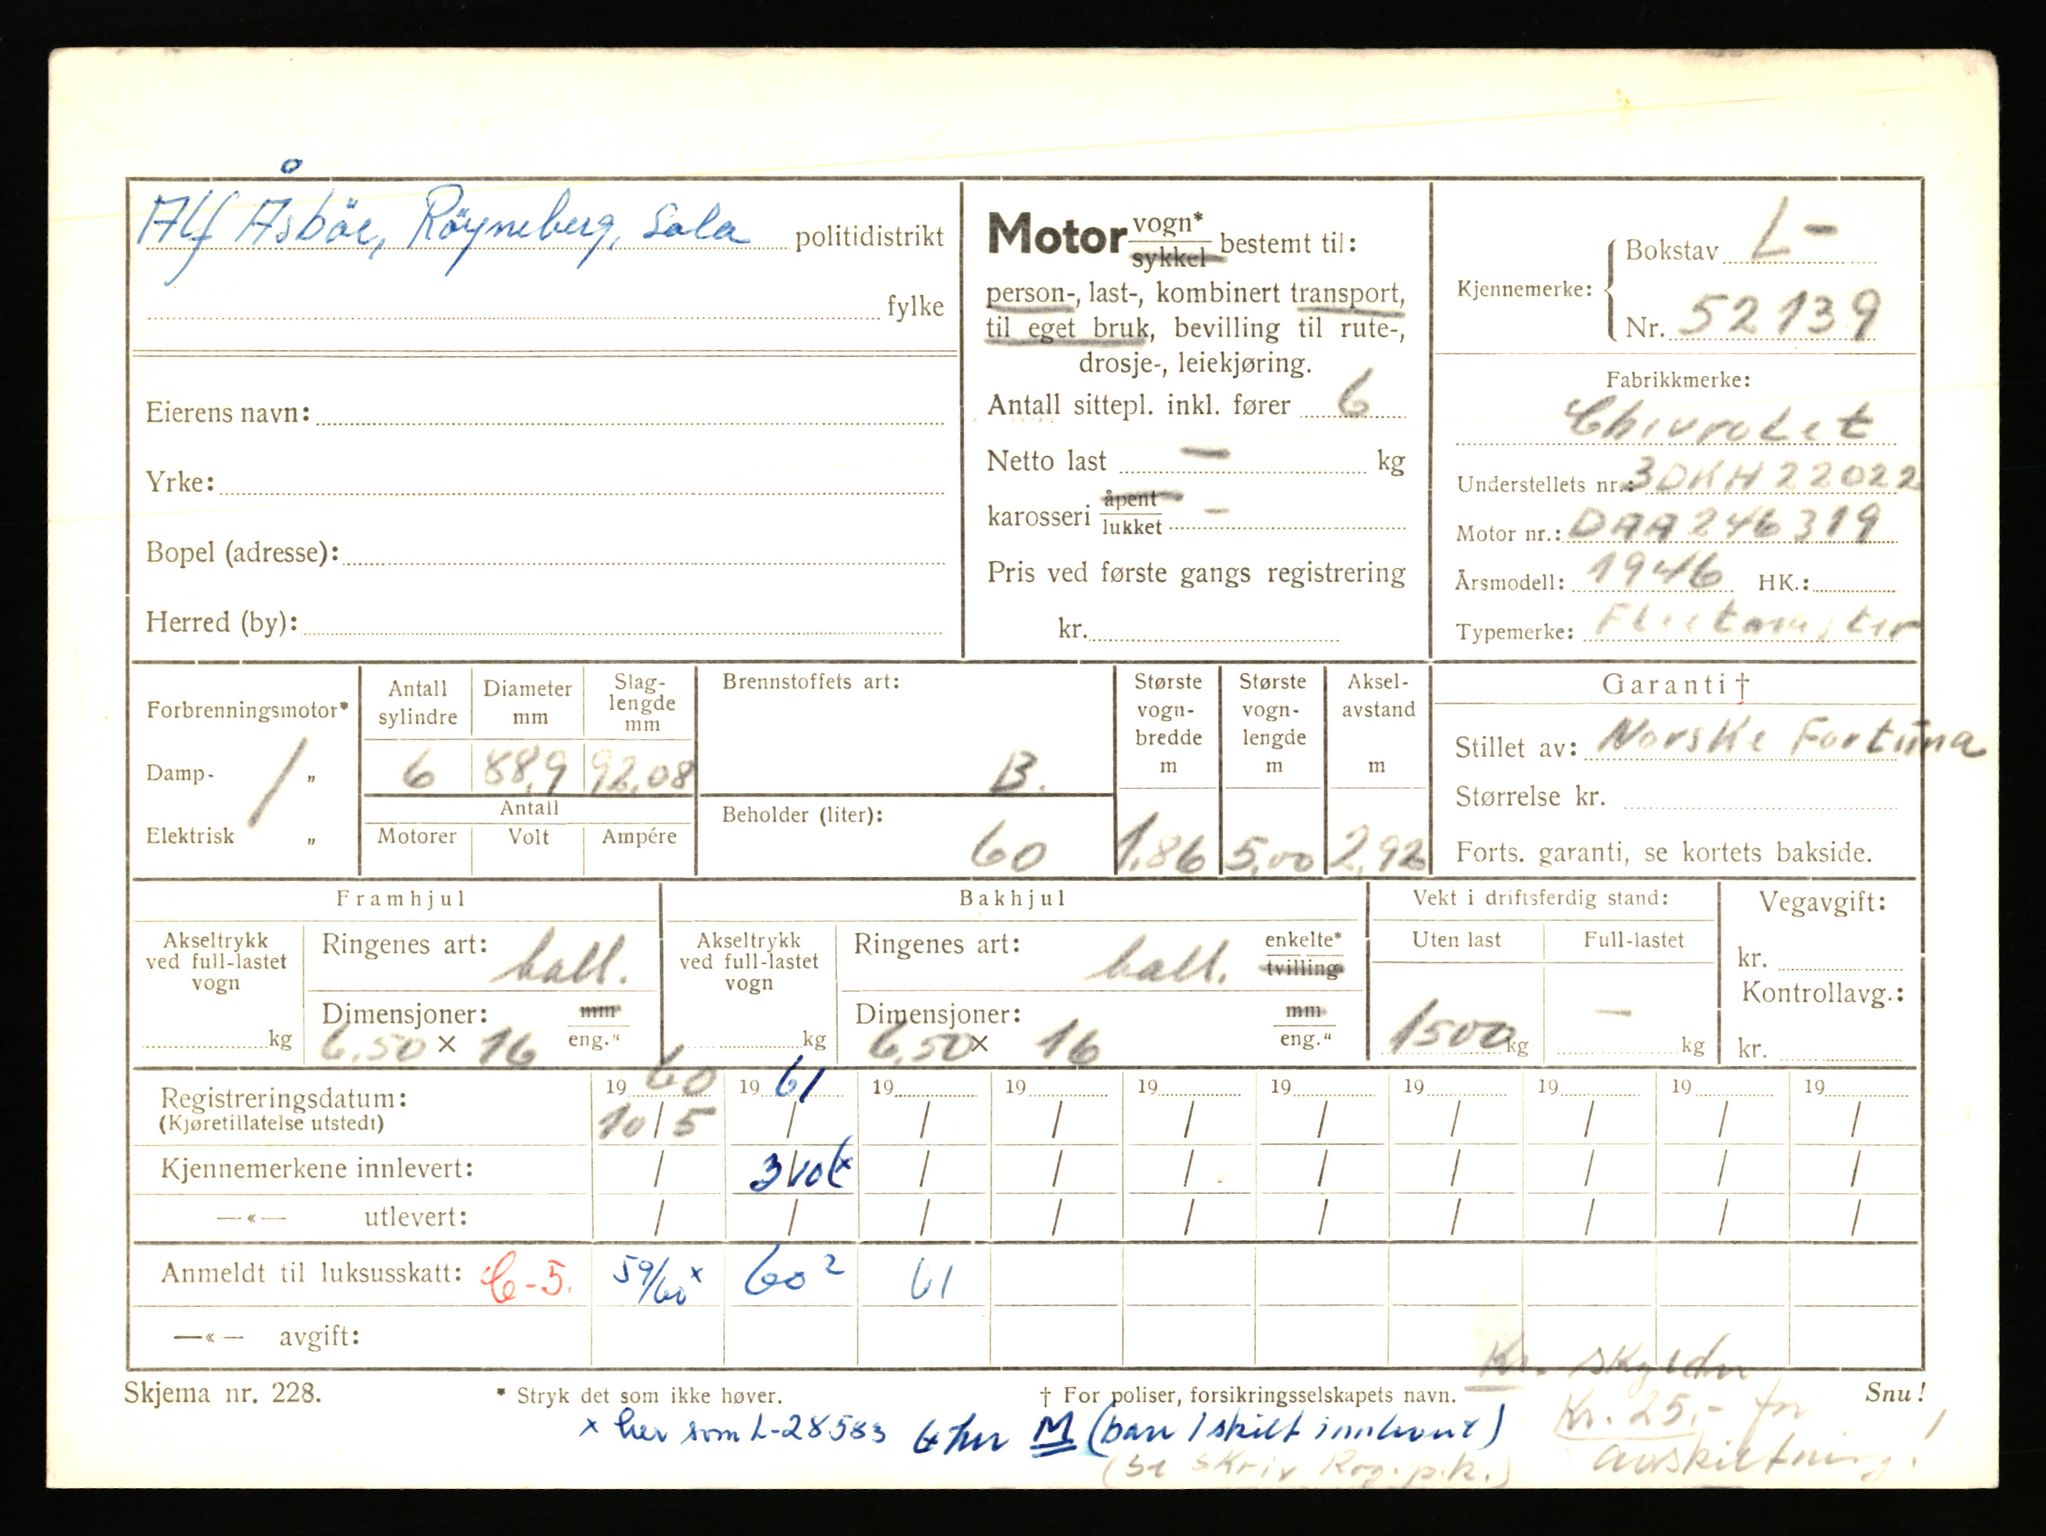 Alf Åsböe, Röyneberg, Sola politidistrikt
fylke
Eierens navn:
Yrke:
Bopel (adresse):
Herred (by):
Motor vogn* sykkel bestemt til:
person-, last-, kombinert transport,
til eget bruk, bevilling til rute-,
drosje-, leiekjøring.
Antall sittepl. inkl. fører 6
Netto last — kg
karosseri åpent lukket —
Pris ved første gangs registrering
kr.
Kjennemerke: Bokstav L-
Nr. 52139
Fabrikkmerke:
Chivrolet
Understellets nr.: 3DKH22022
Motor nr.: DAA246319
Årsmodell: 1946 HK.:
Typemerke: Fleetmaster
Forbrenningsmotor*
Damp- „
Elektrisk „
Antall sylindre 6
Diameter mm 88,9
Slag-lengde mm 92,08
Antall
Motorer Volt Ampére
Brennstoffets art: B.
Beholder (liter): 60
Største vogn-bredde m 1,86
Største vogn-lengde m 5,00
Aksel-avstand m 2,92
Garanti †
Stillet av: Norske Fortuna
Størrelse kr.
Forts. garanti, se kortets bakside.
Framhjul
Akseltrykk ved full-lastet vogn kg
Ringenes art: ball.
Dimensjoner: mm eng."
6,50 × 16
Bakhjul
Akseltrykk ved full-lastet vogn kg
Ringenes art: ball. enkelte* tvilling
Dimensjoner: mm eng."
6,50 × 16
Vekt i driftsferdig stand:
Uten last Full-lastet
1500 kg — kg
Vegavgift:
kr.
Kontrollavg.:
kr.
Registreringsdatum: 19 60 19 61 19 19 19 19 19 19 19 19
(Kjøretillatelse utstedt) 10/5 / / / / / / / / /
Kjennemerkene innlevert: / 3/10 x / / / / / / / /
—«— utlevert: / / / / / / / / / /
Anmeldt til luksusskatt: C-5. 59/60 x 60 2 61
—«— avgift:
Skjema nr. 228. * Stryk det som ikke høver. † For poliser, forsikringsselskapets navn. Snu!
Kr. skylder
Kr. 25,- for
avskiltning!
x her som L-28583 M (bare 1 skilt innlevert)
(se skriv Rog. p.k.)